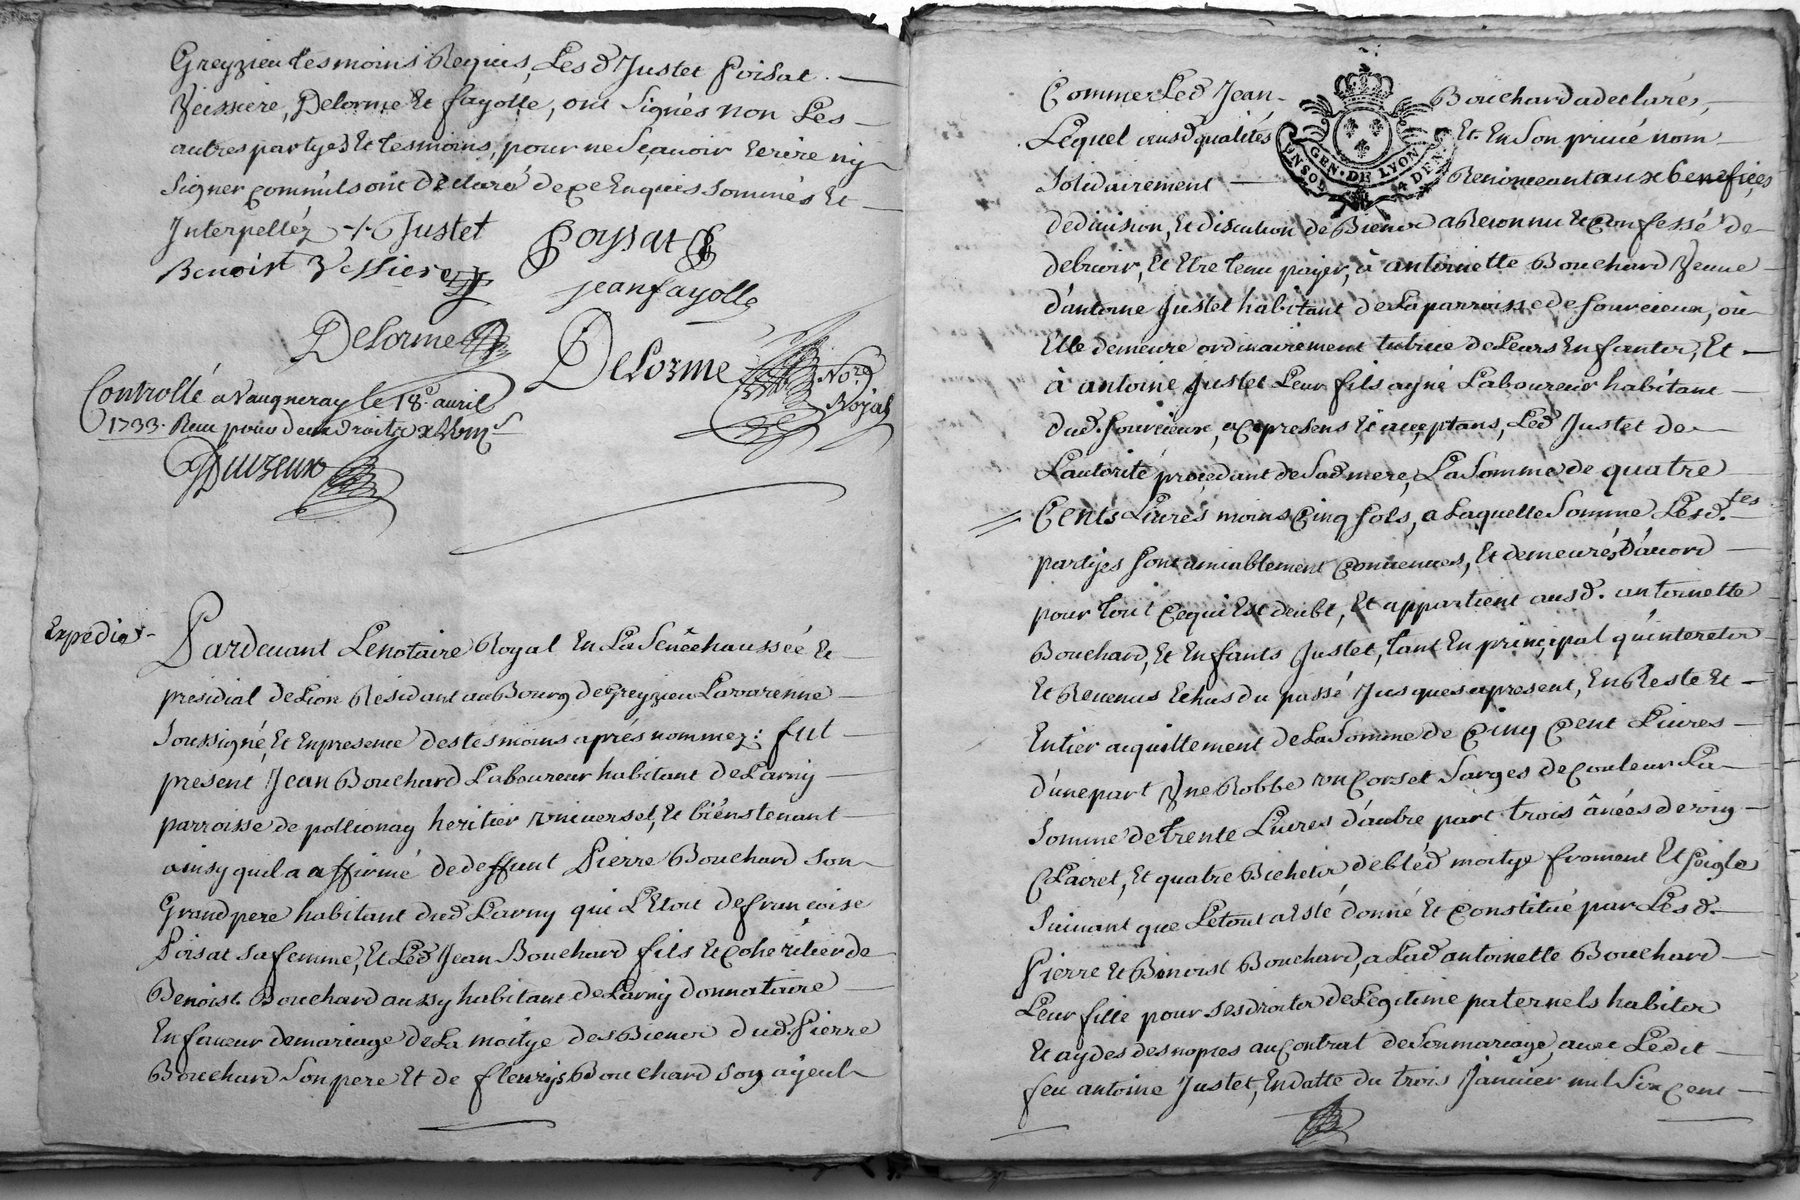 Greyzieu tesmoins Requis, Lesd Justet Poisat
Veissiere, Delorme Et fayolle, ont Signés non Les
autres partyes Et tesmoins, pour ne Sçauoir Ecrire ny
Signer comm'ils ont Déclaré de ce Enquis Sommés Et
Interpellez Justet
Poyssat
Benoist Vessiere
jean fayolle
Delorme
Delorme
No.re Royal
Controllé a Vaugneray le 18e. auril
1733. Receu pour deux droits
Expedié
Pardeuant Le notaire Royal En La Senêchaussée Et
presidial de Lion Residant au Bourg de Greyzieu Lavarenne
Soussigné, Et En presence des tesmoins aprés nommez: fut
present Jean Bouchard Laboureur habitant de Larny
parroisse de pollionay heritier vniuersel, Et biens tenant
ainsy quil a affirmé de deffunt Pierre Bouchard Son
Grand pere habitant dud Larny qui L'Etoit de francoise
Poisat Sa femme, Et Led Jean Bouchard fils Et Coheritier de
Benoist Bouchard aussy habitant de Larny donnataire
En faueur de mariage de La moitye des Biens dud. Pierre
Bouchard Son pere Et de fleurys Bouchard Son ayeul
Comme Led Jean Bouchard a declaré,
Lequel ausd qualités Et En Son priué nom
Solidairement Renonceant aux benefices
GEN. DE LYON
UN SOL 4 DEN
de diuision, Et discution de Biens a Reconnu Et Confessé de
debuoir, Et Etre tenu payer, à antoinette Bouchard Veuue
d'antoine Justet habitant de La parroisse de Sourcieux, où
Elle demeure ordinairement tutrice de Leurs Enfants, Et
à antoine Justet Leur fils ayné Laboureur habitant
dud. Sourcieux, a ce presens Et acceptans, Led Justet de
L'autorité procedant de Sad mere, La Somme de quatre
Cents Liures moins Cinq Sols, a Laquelle Somme Lesd.tes
partyes Sont amiablement Conuenues, Et demeurés D'accord
pour tout Ce qui Est deubt, Et appartient ausd. antoinette
Bouchard, Et Enfants Justet, tant En principal qu'interets
Et Reuenus Echus du passé Jusques a present, En Reste Et
Entier acquittement de La Somme de Cinq Cent Liures
d'une part Vne Robbe vn Corset Sarges de Couleur La
Somme de trente Liures d'autre part trois ânées de vin
Clairet, Et quatre Bichets de bled moitye froment Et Seigle
Suiuant que Le tout a Esté donné Et Constitué par Lesd.
Pierre Et Benoist Bouchard, a Lad antoinette Bouchard
Leur fille pour Ses droits de Legitime paternels habits
Et aydes des nopces au Contrat de Son mariage auec Ledit
feu antoine Justet, En datte du trois Januier mil Six Cent